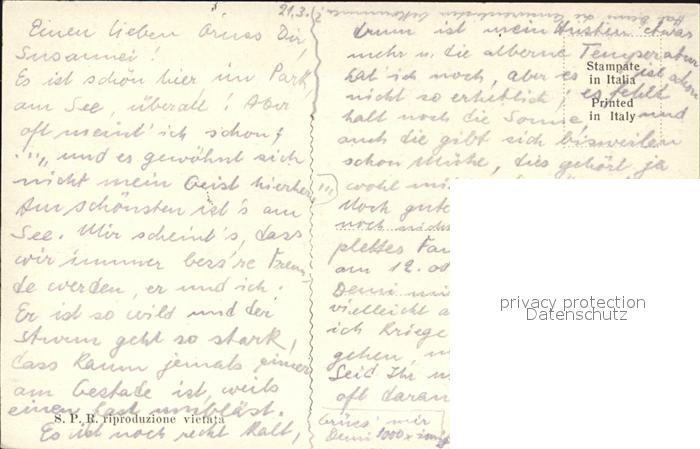 21.3.
Einen lieben Gruss Dir,
Susannei!
Es ist schön hier, im Park,
am See, überall! Aber
oft meint' ich schon,
"", und es gewöhnt sich
nicht mein Geist hierher
Am schönsten ist's am
See. Mir scheint's, dass
wir immer bess're Freun-
de werden, er und ich.
Er ist so wild und der
Sturm geht so stark,
dass kaum jemals einer
am Gestade ist, weils
einen fast umbläst.
S. P. R. riproduzione vietata
Es ist noch recht kalt,
drum ist mein Husten etwas
mehr u. die alberne Temperatur
hat ich noch, aber es ist alles
nicht so erheblich; es fehlt
halt noch die Sonne und
auch die gibt sich bisweilen
schon Mühe, dies gehört ja
wohl
Noch gute
noch nicht
plettes
am 12.
Demi
vielleicht
ich kriege
gehen,
Seid Ihr
oft daran
Grüss' mir
Demi 1000 x
Stampate
in Italia
Printed
in Italy
privacy protection
Datenschutz